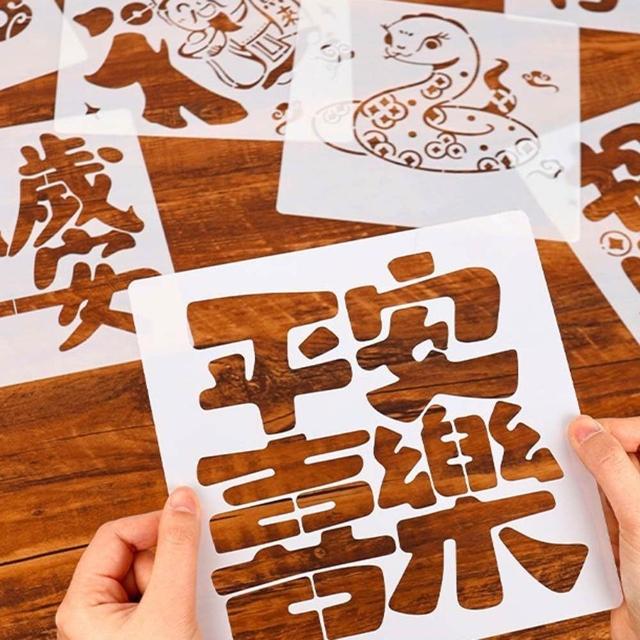 平安
喜樂
歲
安